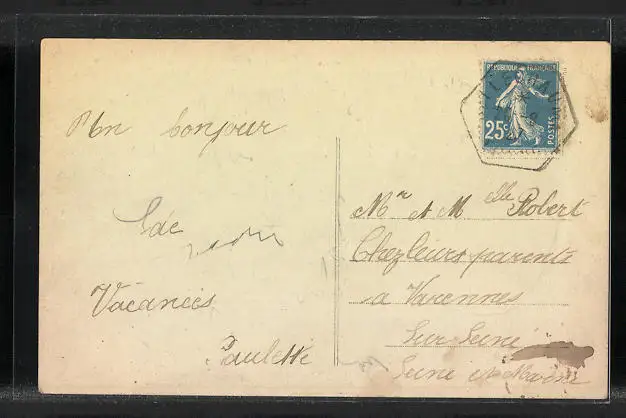 Un bonjour
de
Vacances
Paulette
RÉPUBLIQUE FRANÇAISE
25c
POSTES
Mr et Melle Robert
Chez leurs parents
a Varennes
Sur Seine
Seine et Marne